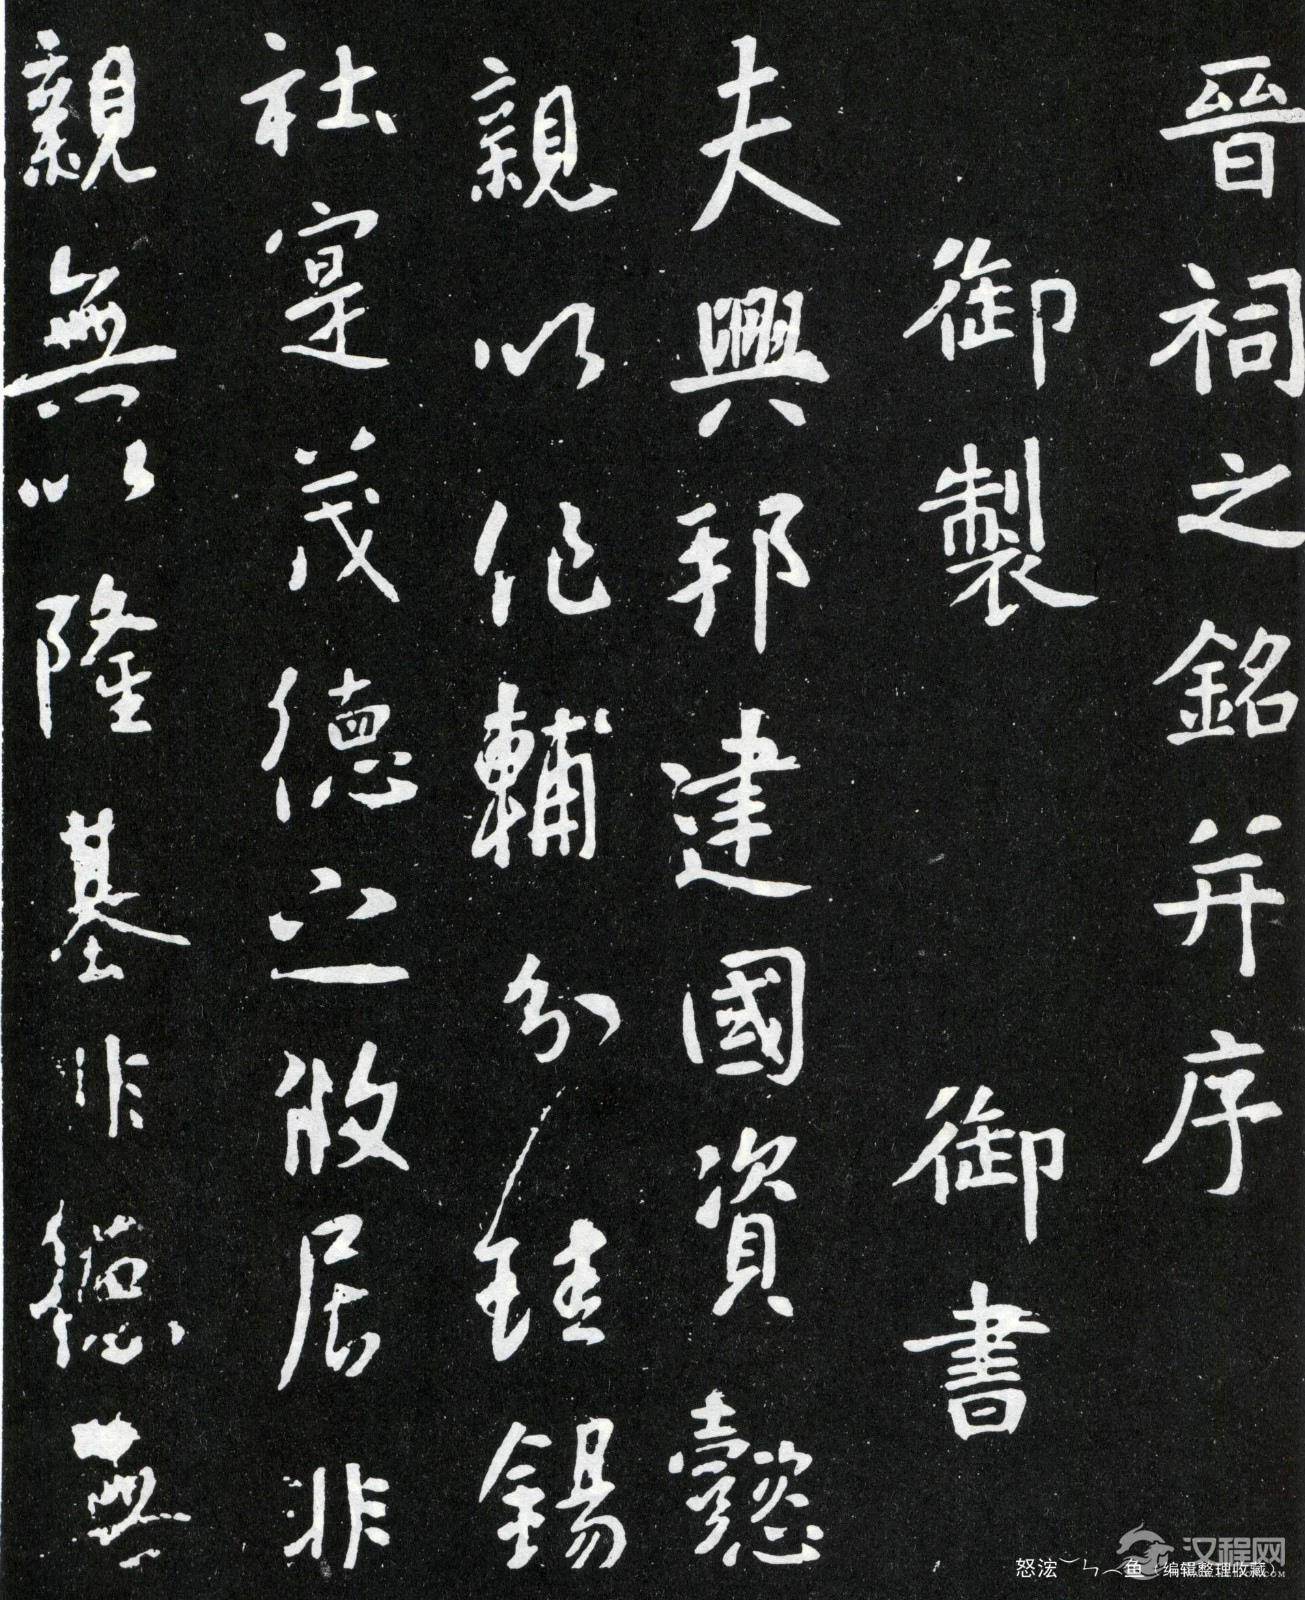 晉祠之銘并序
御製 御書
夫興邦建國資懿
親以作輔分珪錫
社寔茂德之攸居非
親無以隆基非德無
汉程网
怒浤 鱼（编辑整理收藏）